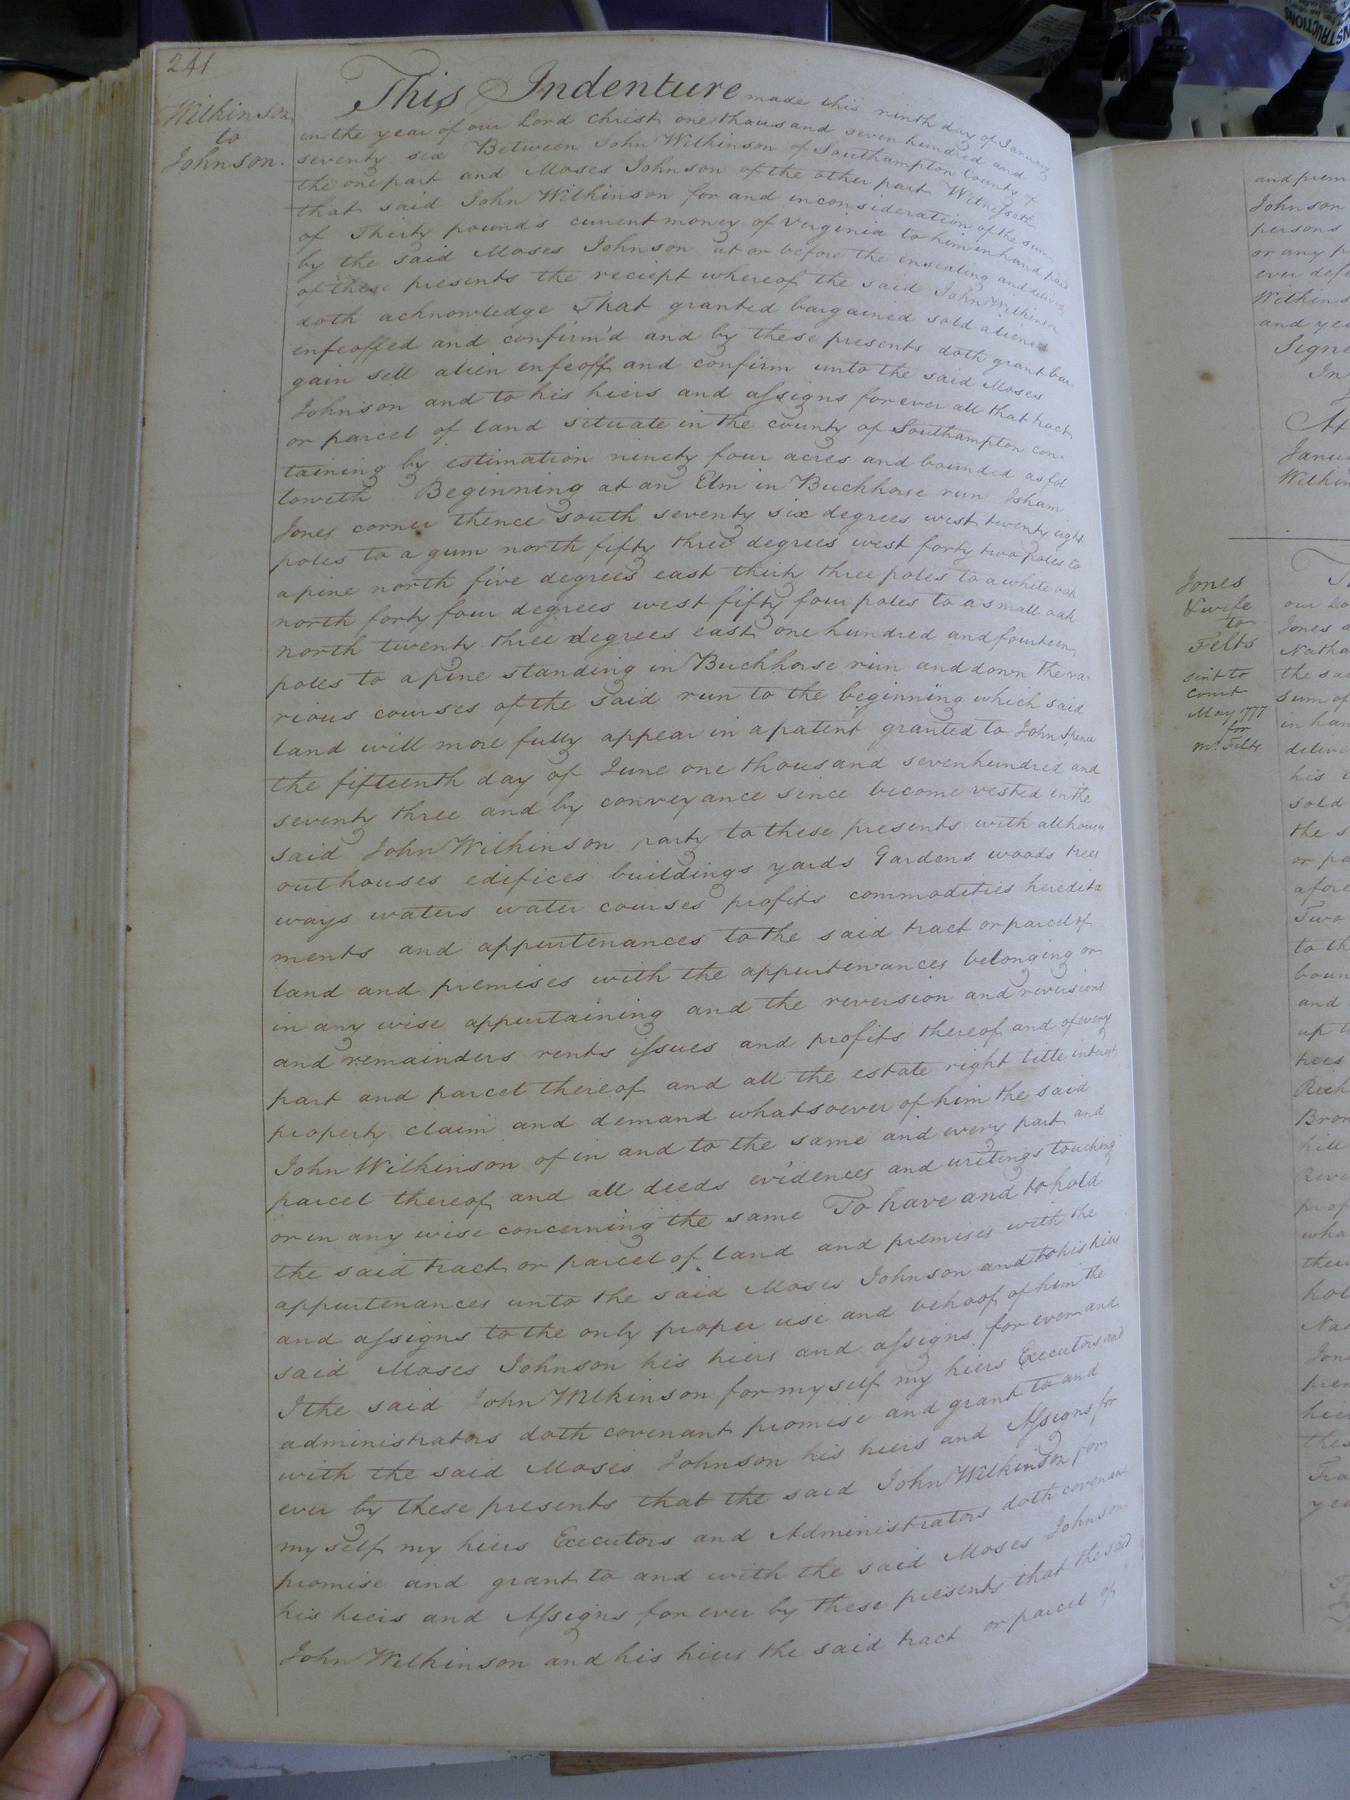 241
Wilkinson
to
Johnson.
This Indenture made this ninth day of January
in the year of our Lord Christ one thousand seven hundred and
seventy six Between John Wilkinson of Southampton County of
the one part and Moses Johnson of the other part Witnesseth
that said John Wilkinson for and in consideration of the sum
of Thirty pound's current money of Virginia to him in hand paid
by the said Moses Johnson at or before the ensealing and delivery
of these presents the reciept whereof the said John Wilkinson
doth acknowledge That granted bargained sold aliened
enfeoffed and confirm'd and by these presents doth grant bar-
gain sell alien enfeoff and confirm unto the said Moses
Johnson and to his hiers and assigns for ever all that tract
or parcel of land situate in the county of Southampton con-
taining by estimation ninety four acres and bounded as fol
loweth Beginning at an Elm in Buckhorse run Isham
Jones corner thence south seventy six degrees west twenty eight
poles to a gum north fifty three degrees west forty two poles to
a pine north five degrees east thirty three poles to a white oak
north forty four degrees west fifty four poles to a small oak
north twenty three degrees east one hundred and fourteen
poles to a pine standing in Buckhorse run and down the va-
rious courses of the said run to the beginning which said
land will more fully appear in a patent granted to John Spence
the fifteenth day of June one thousand sevenhundred and
seventy three and by conveyance since become vested in the
said John Wilkinson party to these presents with all houses
outhouses edifices buildings yards Gardens woods trees
ways waters water courses profits commodities heredita
ments and appurtenances to the said tract or parcel of
land and premises with the appurtenances belonging or
in any wise appurtaining and the reversion and reversions
and remainders rents issues and profits thereof and of every
part and parcel thereof and all the estate right title interest
property claim and demand whatsoever of him the said
John Wilkinson of in and to the same and every part and
parcel thereof and all deeds evidences and writings touching
or in any wise concerning the same To have and to hold
the said tract or parcel of land and premises with the
appurtenances unto the said Moses Johnson and to his hiers
and assigns to the only proper use and behoof of him the
said Moses Johnson his hiers and assigns for ever and
I the said John Wilkinson for myself my hiers Executors and
administrators doth covenant promise and grant to and
with the said Moses Johnson his hiers and Assigns for
ever by these presents that the said John Wilkinson for
myself my hiers Executors and Administrators doth covenant
promise and grant to and with the said Moses Johnson
his hieis and Assigns for ever by these presents that the said
John Wilkinson and his hiers the said tract or parcel of
and prem
Johnson
persons
or any p
ever defe
Wilkins
and yea
Signe
In
At
Janua
Wilkin
Jones
& wife
to
Felts
sent to
court
May 1777
for
Mr. Felts
our Lo
Jones a
Natha
the sai
sum of
in han
delive
his
sold
the s
or pa
afore
Two
to th
boun
and
up t
trees
hill
prof
wha
thei
hol
Nat
Jone
prem
hier
thes
yea